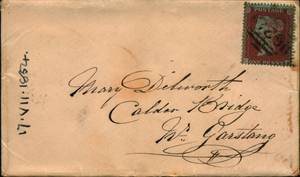 Mary Dilworth
Calder Bridge
Nr. Garstang
17.VII.1857.